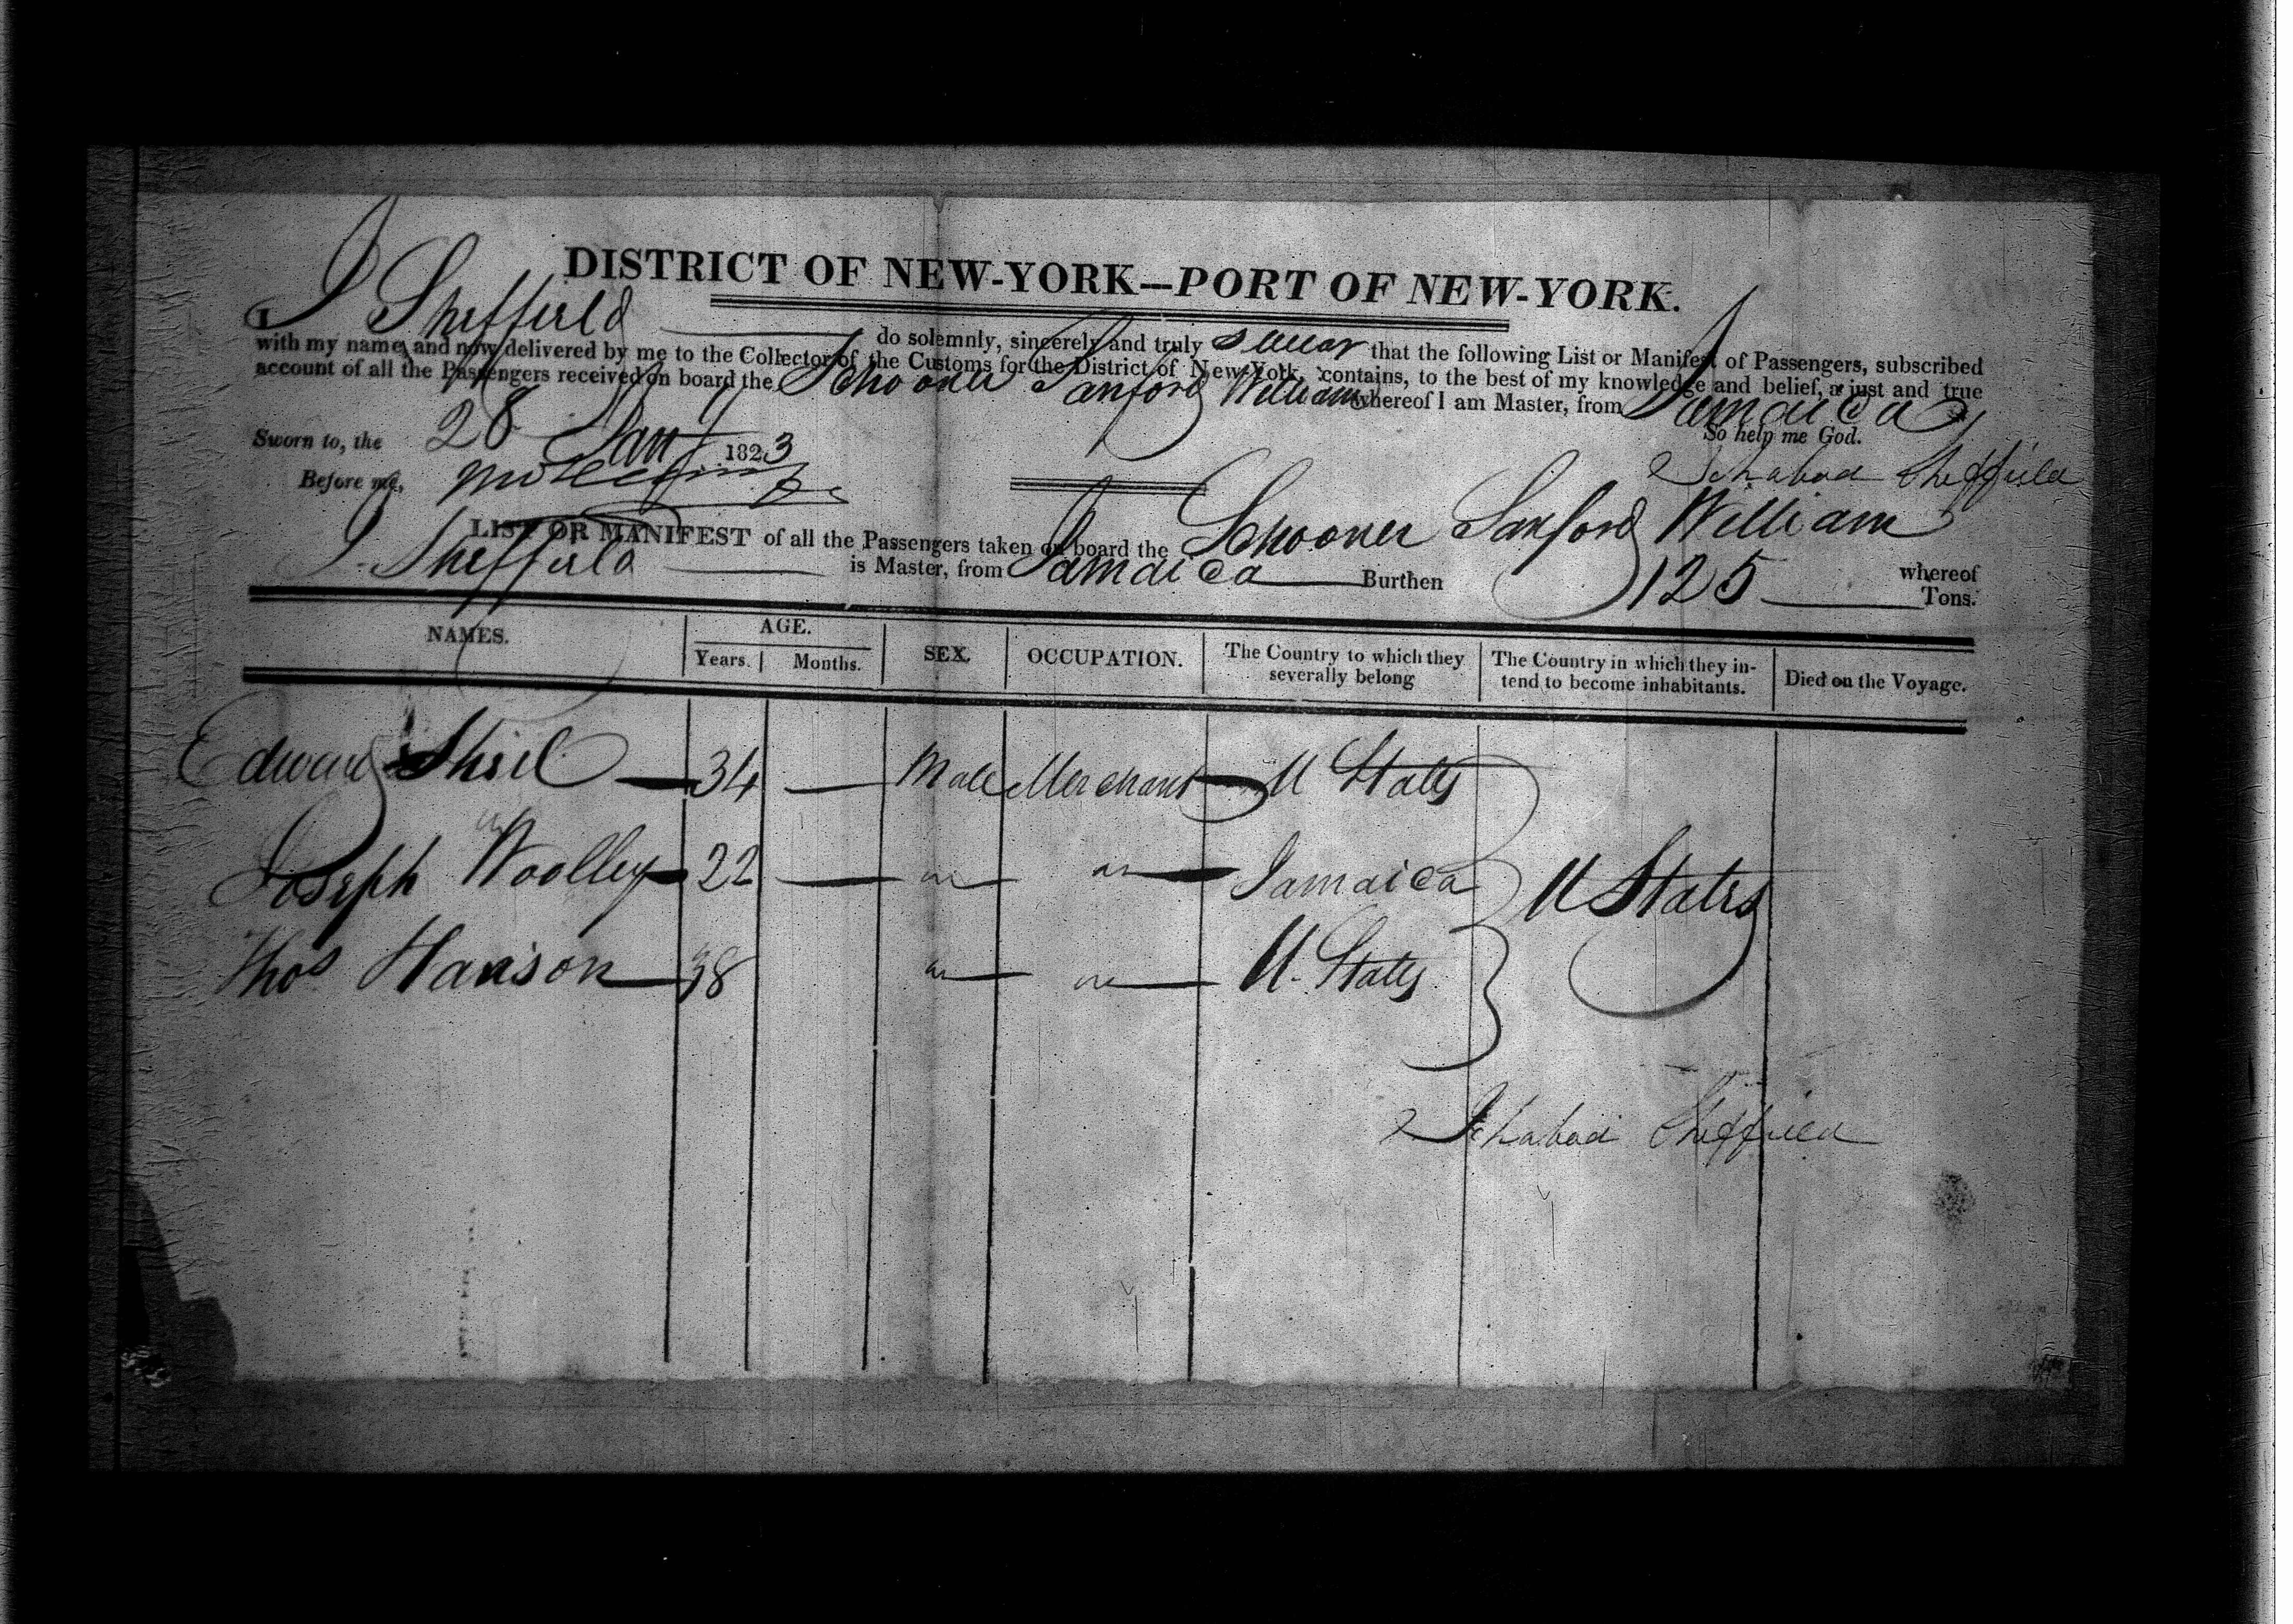 DISTRICT OF NEW-YORK—PORT OF NEW-YORK.
I J Sheffield do solemnly, sincerely and truly swear that the following List or Manifest of Passengers, subscribed
with my name, and now delivered by me to the Collector of the Customs for the District of New-York, contains, to the best of my knowledge and belief, a just and true
account of all the Passengers received on board the Schooner Sanford William whereof I am Master, from Jamaica
So help me God.
Sworn to, the 28 Jany 1823
Ichabod Sheffield
Before me,
LIST OR MANIFEST of all the Passengers taken on board the Schooner Sanford William whereof
J. Sheffield is Master, from Jamaica Burthen 125 Tons.
NAMES. AGE. Years. Months. SEX. OCCUPATION. The Country to which they severally belong The Country in which they intend to become inhabitants. Died on the Voyage.
Edward Shiel 34 — Male Merchant U States
Joseph Woolley 22 — do do Jamaica U States
Thos Hanson 38 do do U. States
Ichabod Sheffield